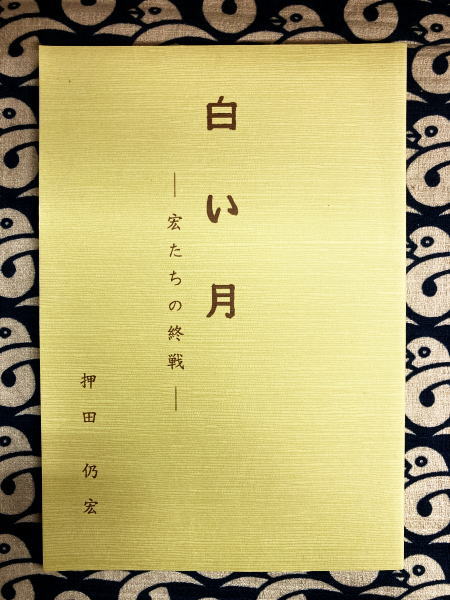 白い月
—宏たちの終戦—
押田 仍宏